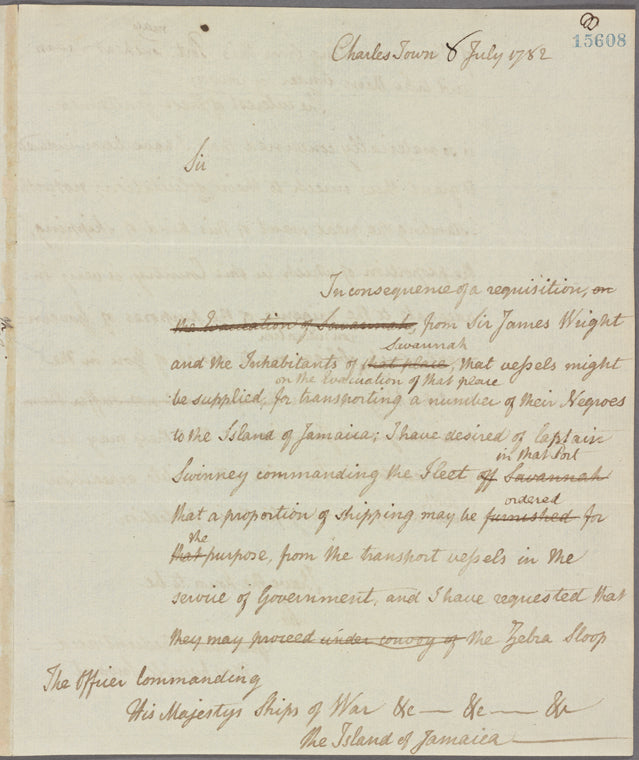 15608
Charles Town 8 July 1782
Sir
In consequence of a requisition, on
the Evacuation of Savannah, from Sir James Wright
Savannah
and the Inhabitants of that place, that vessels might
on the Evacuation of that place
be supplied, for transporting a number of their Negroes
to the Island of Jamaica; I have desired of Captain
in that Port
Swinney commanding the Fleet off Savannah
ordered
that a proportion of shipping may be furnished for
the
that purpose, from the transport vessels in the
service of Government, and I have requested that
they may proceed under convoy of the Zebra Sloop
The Officer Commanding
His Majestys Ships of War &c — &c — &c
the Island of Jamaica